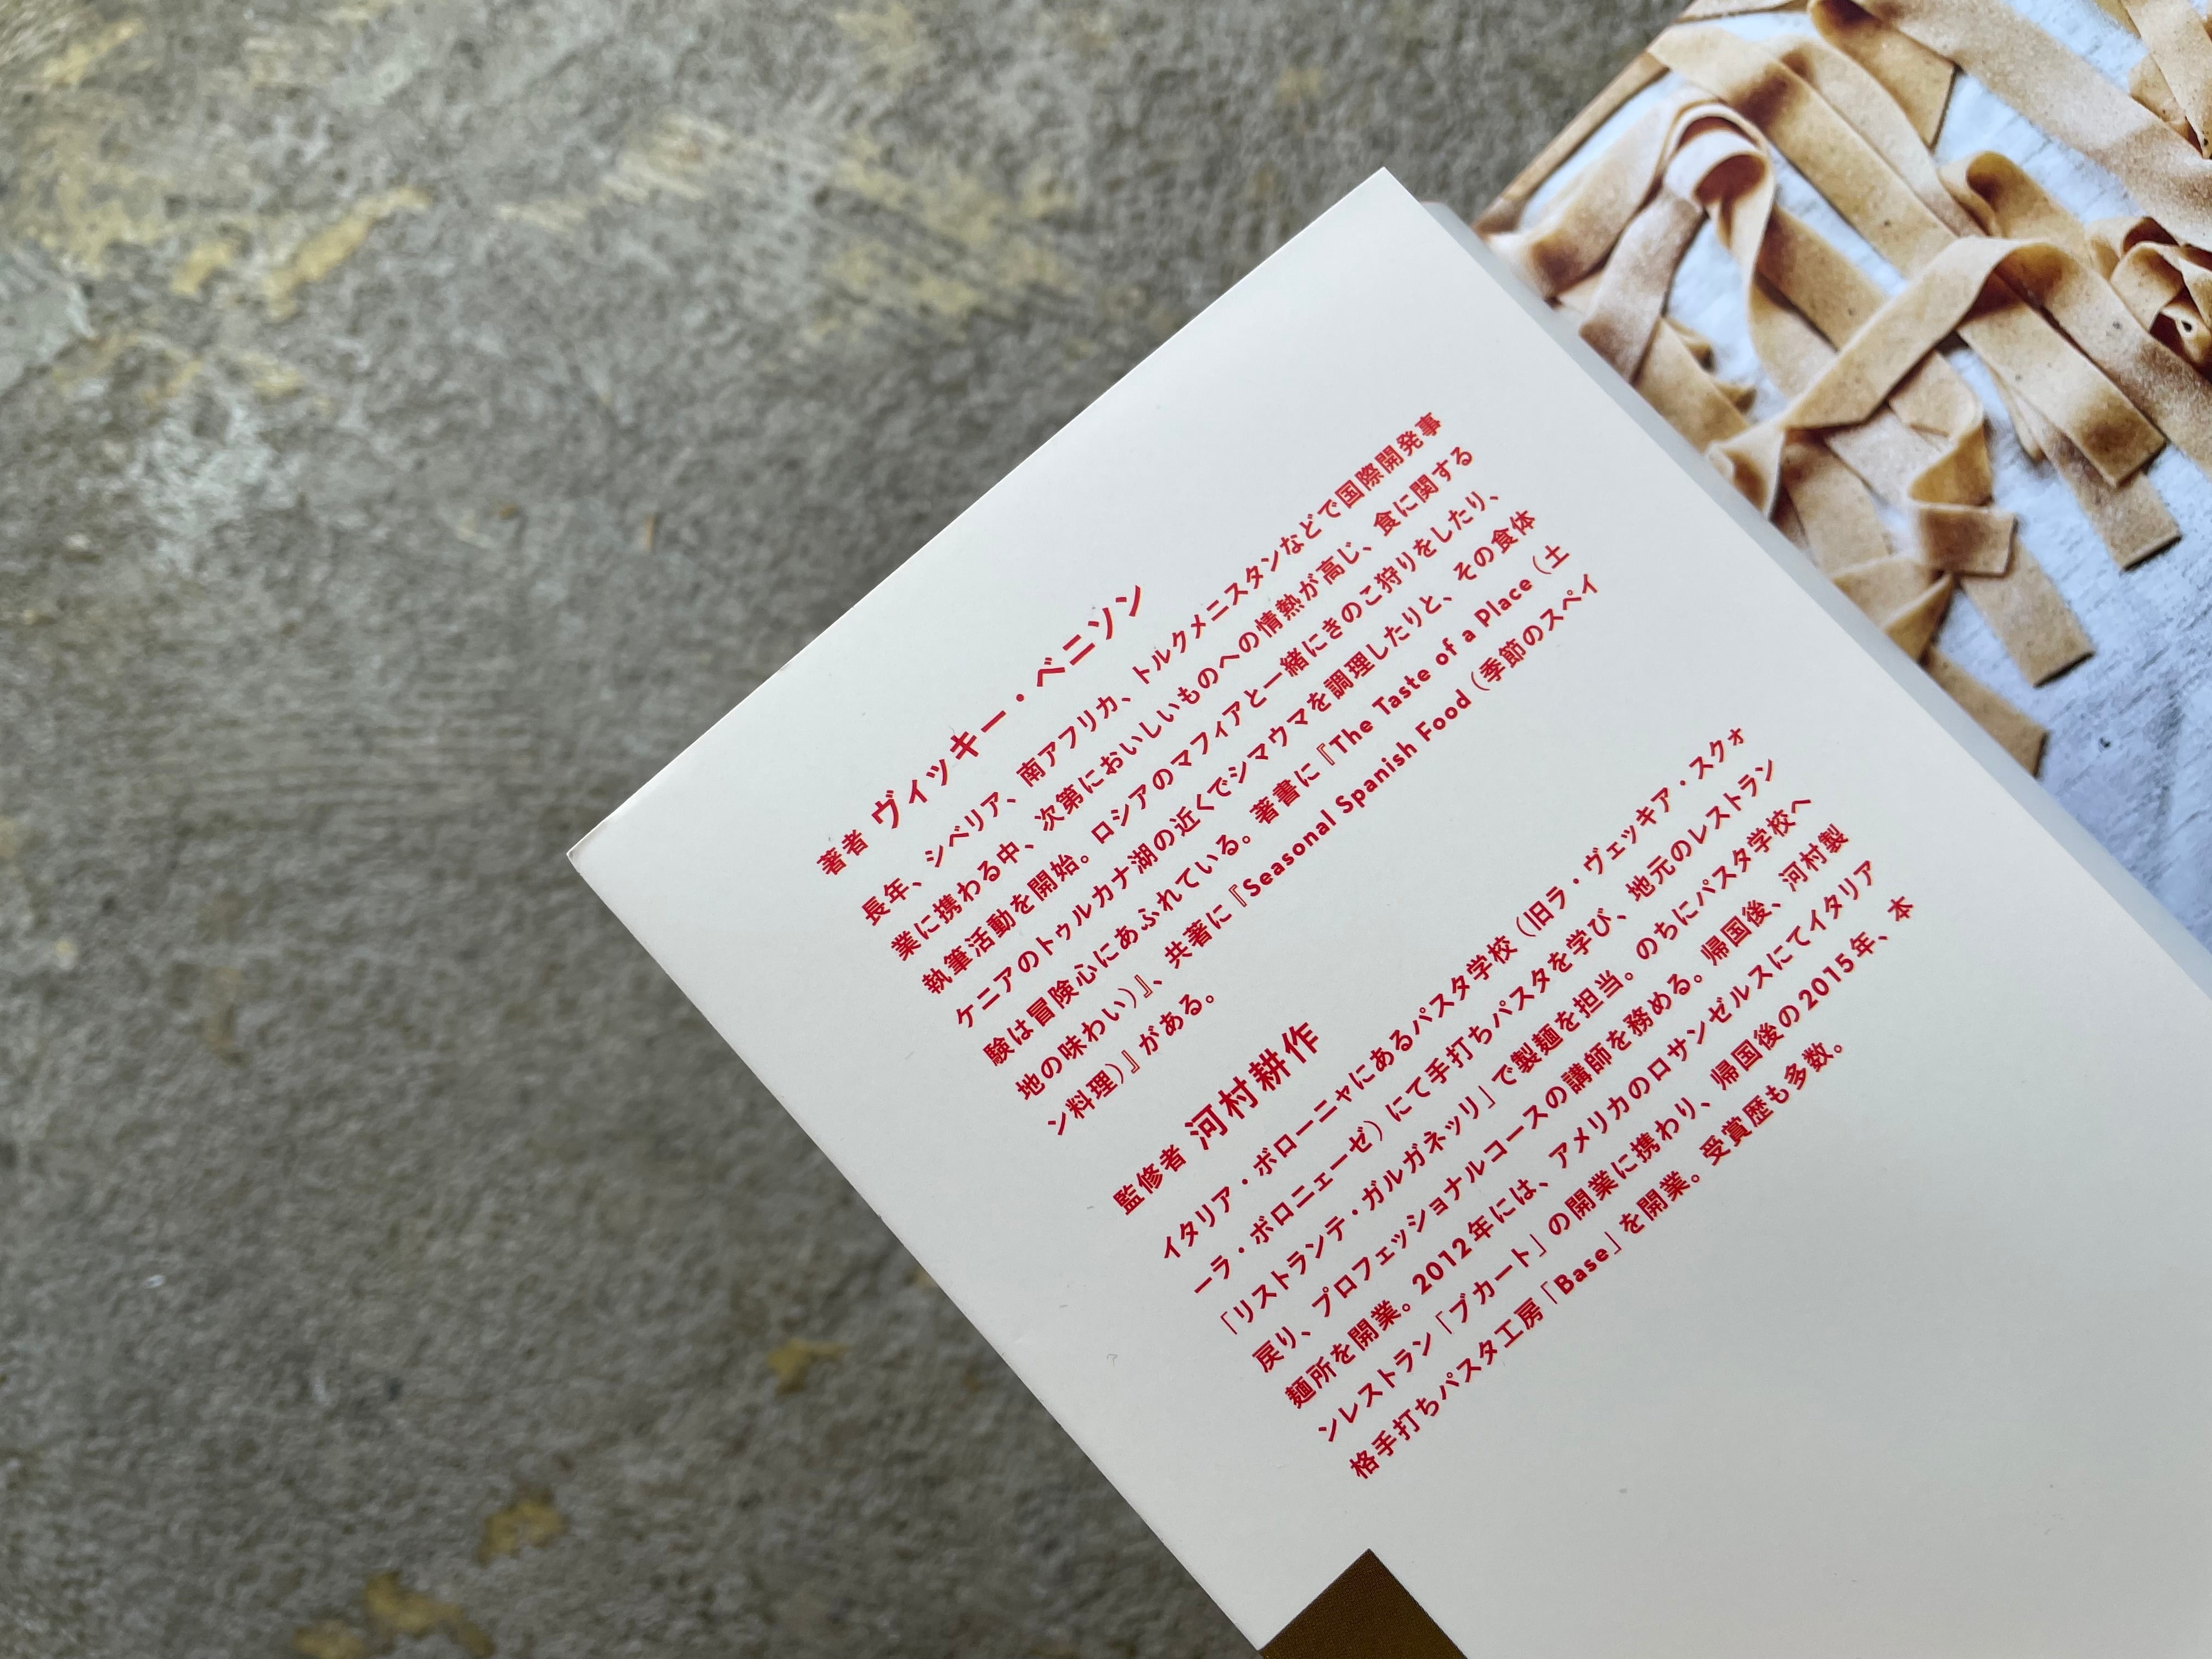 著者 ヴィッキー・ベニソン
長年、シベリア、南アフリカ、トルクメニスタンなどで国際開発事
業に携わる中、次第においしいものへの情熱が高じ、食に関する
執筆活動を開始。ロシアのマフィアと一緒にきのこ狩りをしたり、
ケニアのトゥルカナ湖の近くでシマウマを調理したりと、その食体
験は冒険心にあふれている。著書に『The Taste of a Place（土
地の味わい）』、共著に『Seasonal Spanish Food（季節のスペイ
ン料理）』がある。
監修者 河村耕作
イタリア・ボローニャにあるパスタ学校（旧ラ・ヴェッキア・スクォ
ーラ・ボロニェーゼ）にて手打ちパスタを学び、地元のレストラン
「リストランテ・ガルガネッリ」で製麺を担当。のちにパスタ学校へ
戻り、プロフェッショナルコースの講師を務める。帰国後、河村製
麺所を開業。2012年には、アメリカのロサンゼルスにてイタリア
ンレストラン「ブカート」の開業に携わり、帰国後の2015年、本
格手打ちパスタ工房「Base」を開業。受賞歴も多数。